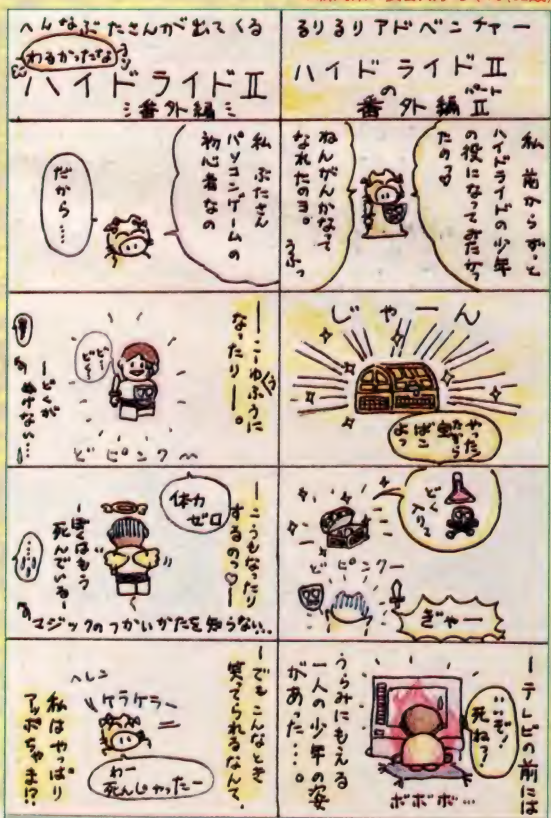 るりるりアドベンチャー
ハイドライドII
の
番外編パートII
私 前からずっと
ハイドライドの少年
の役になってみたかっ
たの
ねんがんかなって
なれたのヨ。
うふっ
じゃーん
やったー
宝ばこ
たから
よっ
どく
入り
どピンクー
ぎゃー
ーテレビの前には
…ぞ!
死ね?!
うらみにもえる
一人の少年の姿
があった…。
ボボボ…
へんなぶたさんが出てくる
わるかったなよ
ハイドライドII
番外編
私 ぶたさん
パソコンゲームの
初心者なの
だから…
ーこーゆふうに
なったりー。
ピピー
ピピー
ーどくが
ぬけない…
どピンク〜
ーこうもなったり
するのっ♡ー
体力
ゼロ
ーぼくはもう
死んでいるー
マジックのつかいかたを知らない…
ーでもこんなとき
笑ってられるなんて、
へレン
ケラケラー
わー
死んじゃったー
私はやっぱり
アッポちゃま!?